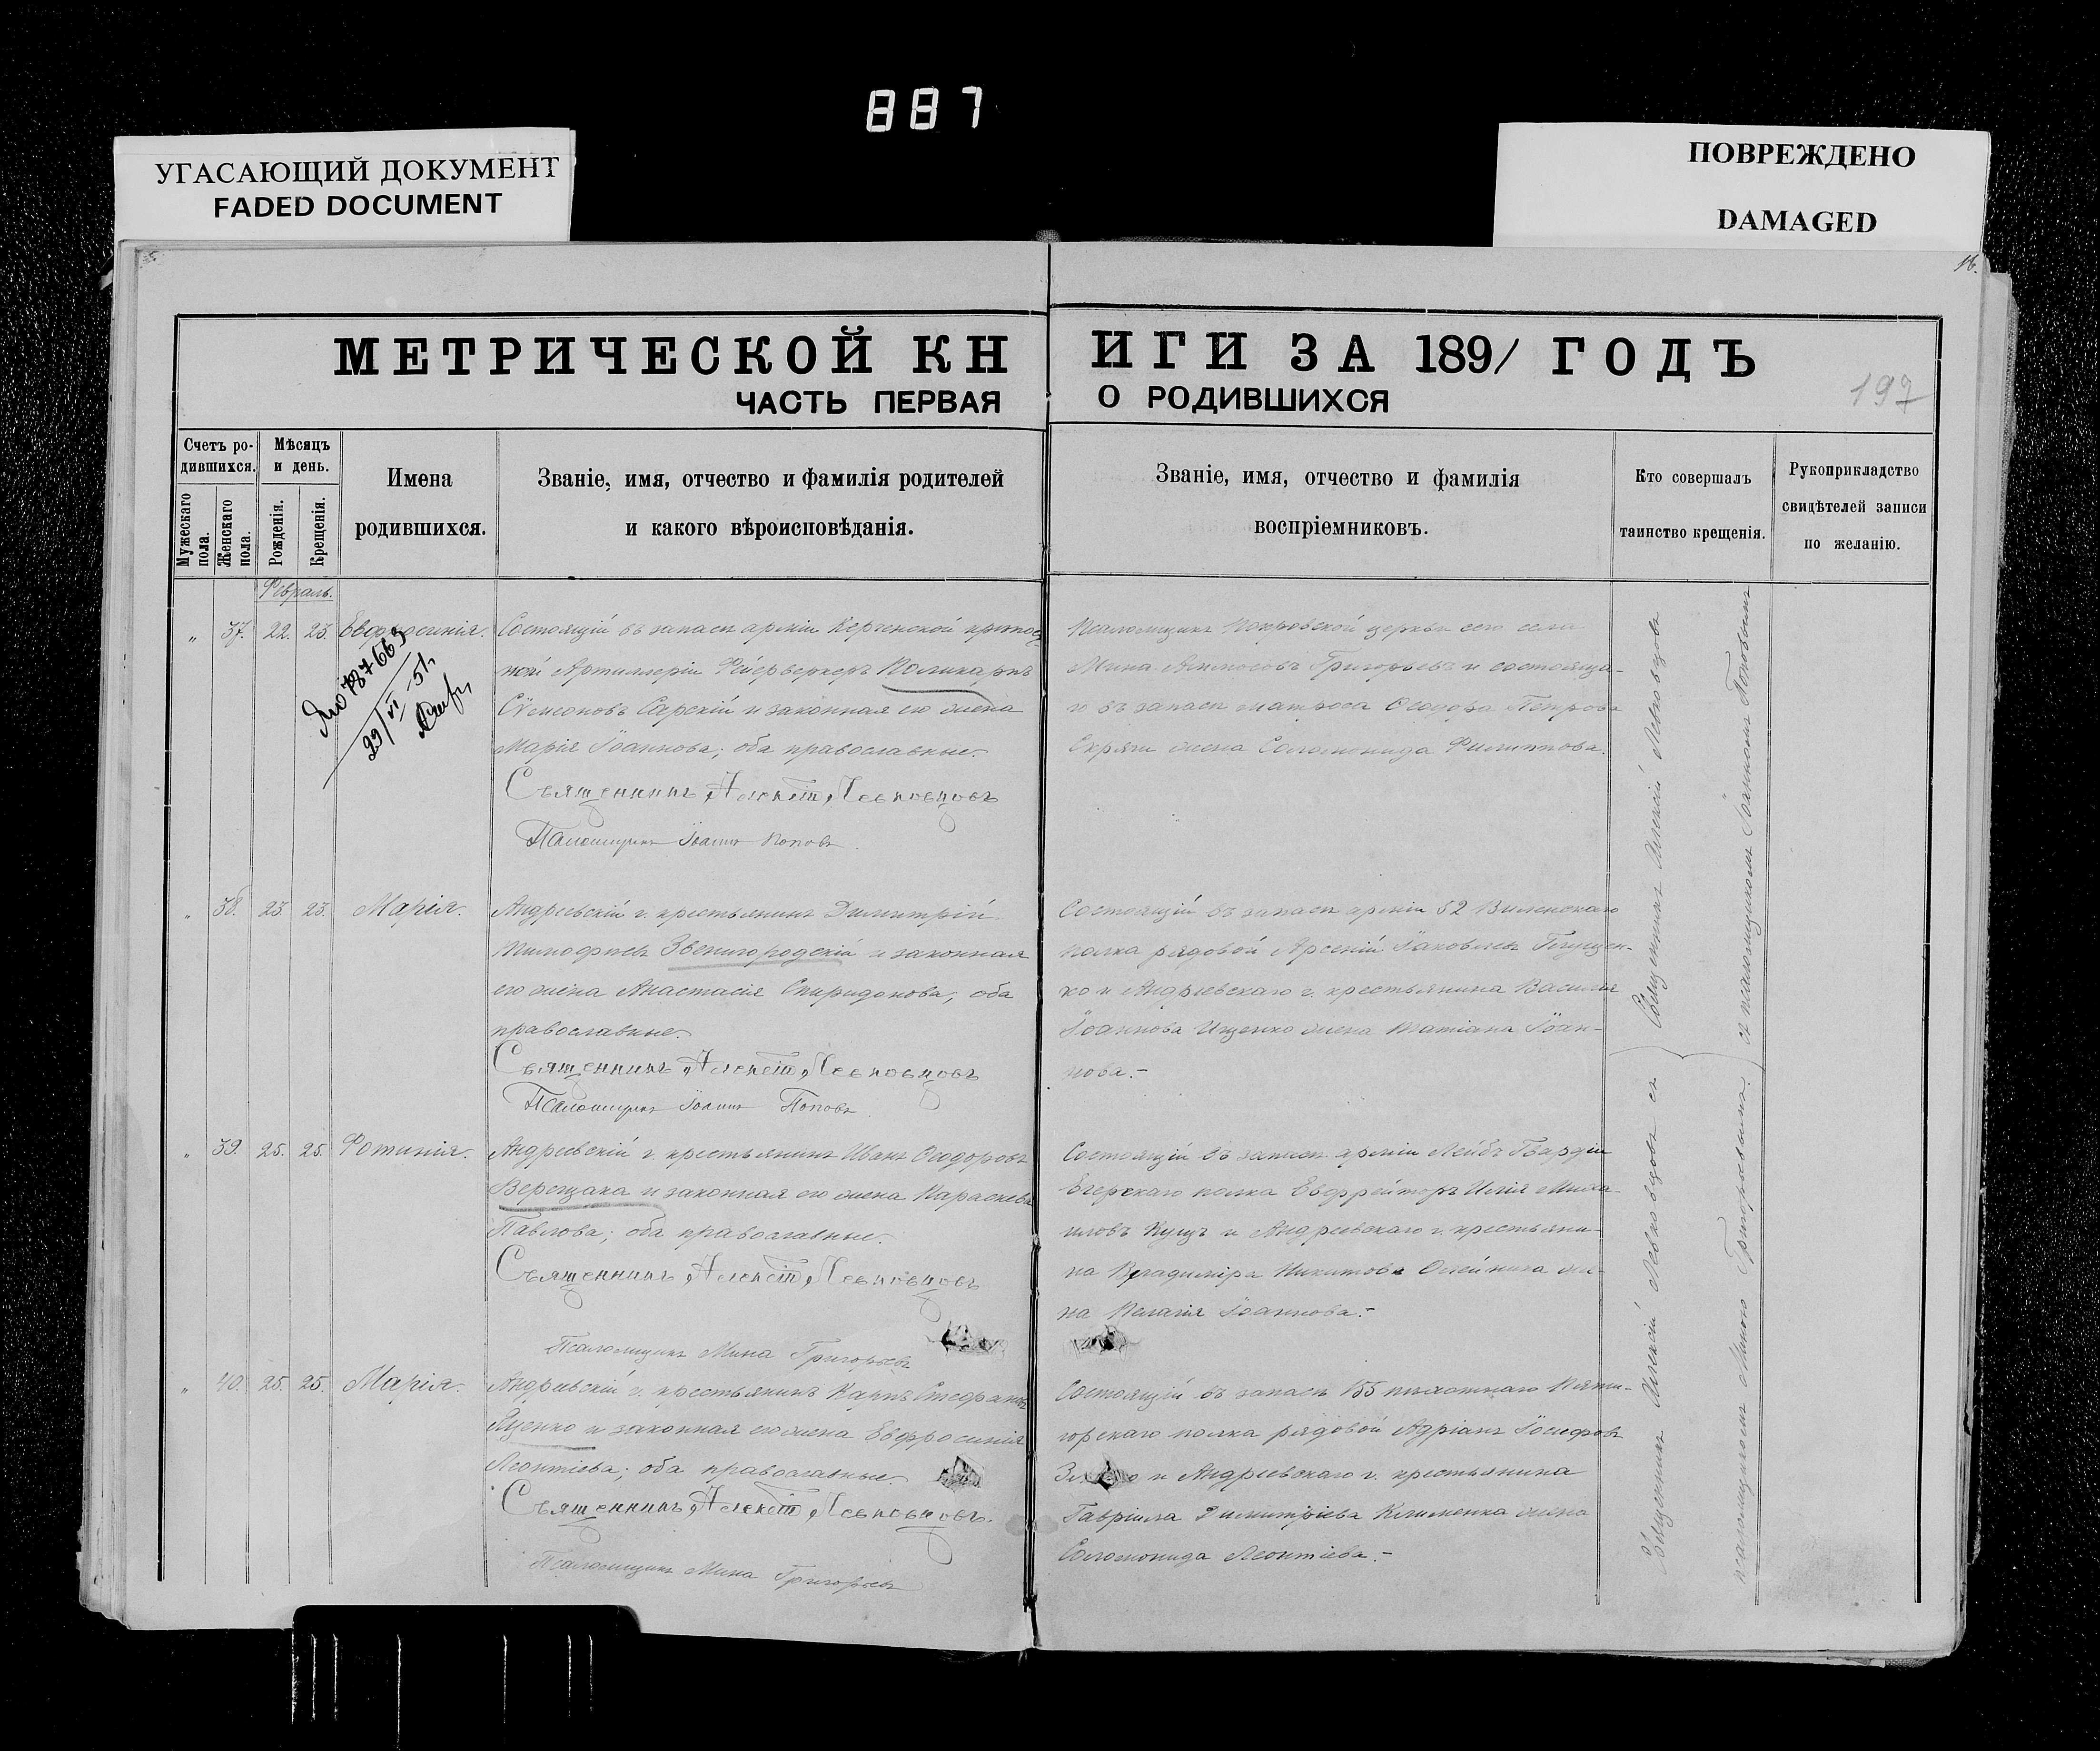 887
УГАСАЮЩИЙ ДОКУМЕНТ
FADED DOCUMENT
ПОВРЕЖДЕНО
DAMAGED
16.
МЕТРИЧЕСКОЙ КНИГИ ЗА 1891 ГОДЪ
ЧАСТЬ ПЕРВАЯ О РОДИВШИХСЯ
197
Счетъ ро-
дившихся.
Мужескаго пола.
Женскаго пола.
Мѣсяцъ
и день.
Рожденія.
Крещенія.
Имена
родившихся.
Званіе, имя, отчество и фамилія родителей
и какого вѣроисповѣданія.
Званіе, имя, отчество и фамилія
воспріемниковъ.
Кто совершалъ
таинство крещенія.
Рукоприкладство
свидѣтелей записи
по желанію.
Февраль.
„ 37. 22. 23. Евфросинія.
787663
29/VI-51
Состоящій въ запасѣ арміи Керченской крѣпост
ной Артиллеріи Фейерверкеръ Поликарпъ
Сѵмеоновъ Сарскій и законная его жена
Марія Іоаннова; оба православные.
Священникъ Алексій Левковцовъ
Псаломщикъ Іоаннъ Поповъ
Псаломщикъ Покровской церкви сего села
Мина Григорьевъ и состояща-
го въ запасѣ матроса Ѳеодора Петрова
Скряги жена Соломонида Филиппова.
„ 38. 23. 23. Марія.
Андреевскій г. крестьянинъ Димитрій
Тимофеевъ Звенигородскій и законная
его жена Анастасія Спиридонова, оба
православные.
Священникъ Алексій Левковцовъ
Псаломщикъ Іоаннъ Поповъ
Состоящій въ запасѣ арміи 52 Виленскаго
полка рядовой Арсеній Іаковлевъ
ко и Андреевскаго г. крестьянина Василія
Іоаннова Ищенко жена Татіана Іоан-
нова.-
„ 39. 25. 25. Фотинія.
Андреевскій г. крестьянинъ Иванъ Ѳеодоровъ
Верещака и законная его жена Параскева
Павлова; оба православные.
Священникъ Алексій Левковцовъ
Псаломщикъ Мина Григорьевъ
Состоящій въ запасѣ арміи Лейбъ Гвардіи
Егерскаго полка Ефрейторъ Илія Миха-
иловъ Куцъ и Андреевскаго г. крестьяни-
на Владиміра Никитова Олейника же-
на Пелагія Іоаннова.-
„ 40. 25. 25. Марія.
Андреевскій г. крестьянинъ Карпъ Стефановъ
Яценко и законная его жена Евфросинія
Леонтіева; оба православные.
Священникъ Алексій Левковцовъ.
Псаломщикъ Мина Григорьевъ
Состоящій въ запасѣ 155 пѣхотнаго Пяти-
горскаго полка рядовой Адріанъ Іосифовъ
и Андреевскаго г. крестьянина
Гавріила Димитріева Клименка жена
Соломонида Леонтіева.-
Священникъ Алексій Левковцовъ
съ псаломщикомъ Іоанномъ Поповымъ
Священникъ Алексій Левковцовъ съ
псаломщикомъ Миною Григорьевымъ.